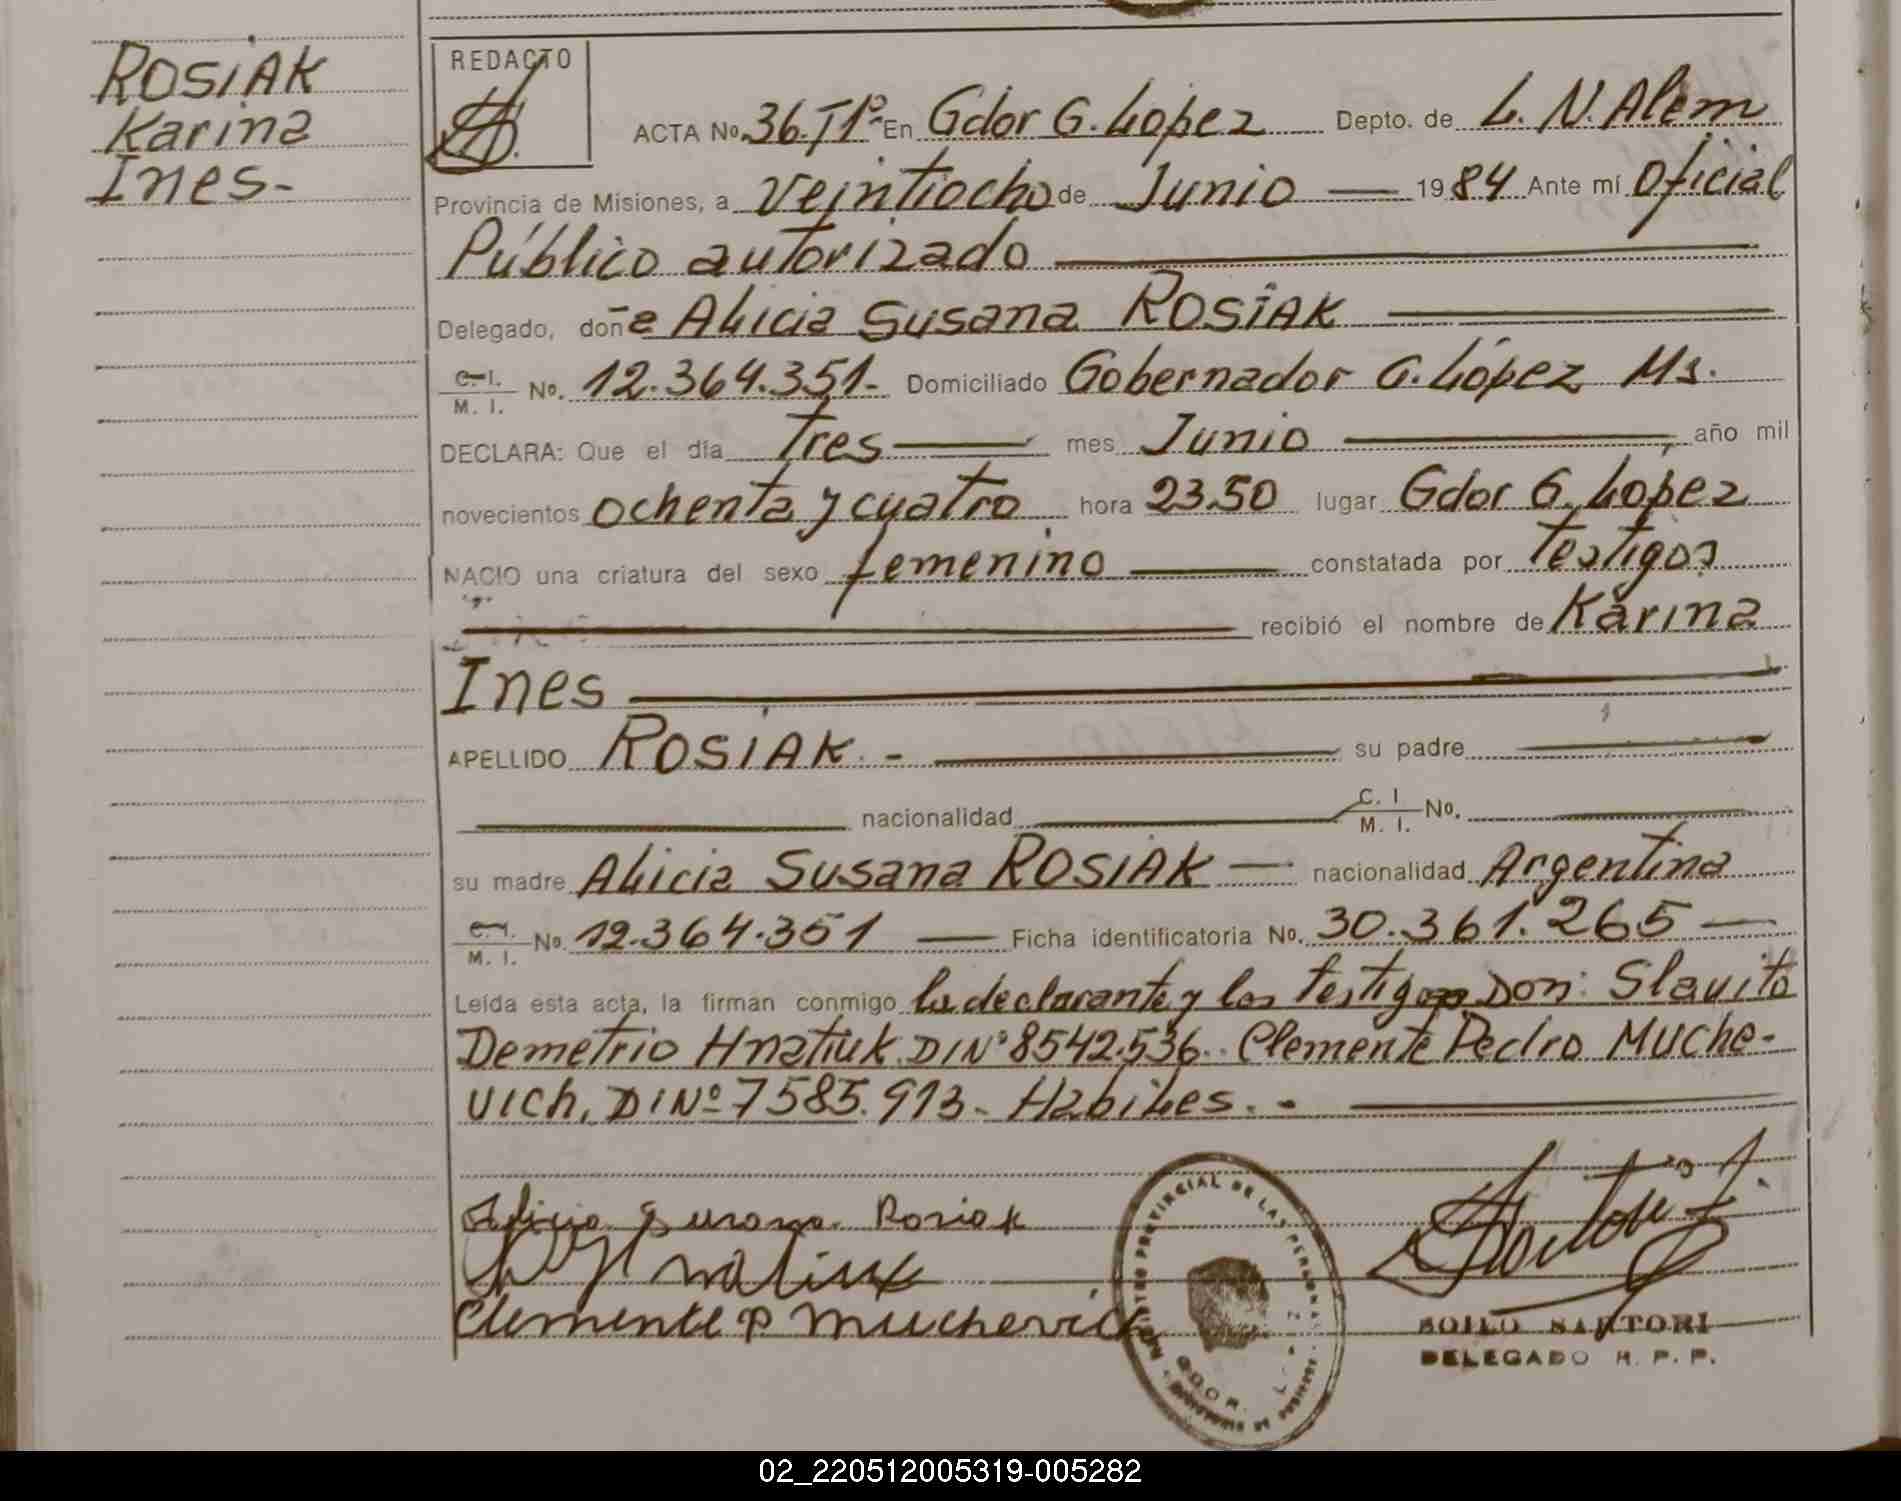 ROSIAK
Karina
Ines-
REDACTO
ACTA No. 36. T1º- En Gdor G. López Depto. de L. N. Alem
Provincia de Misiones, a Veintiocho de Junio — 1984 Ante mí Oficial
Público autorizado
Delegado, doña Alicia Susana ROSIAK
C. I. / M. I. No. 12.364.351- Domiciliado Gobernador G. López Ms.
DECLARA: Que el día Tres — mes Junio — año mil
novecientos ochenta y cuatro hora 23.50 lugar Gdor G. López
NACIO una criatura del sexo femenino — constatada por Testigos
recibió el nombre de Karina
Ines
APELLIDO ROSIAK. - su padre
nacionalidad C. I. / M. I. No.
su madre Alicia Susana ROSIAK — nacionalidad Argentina
C. I. / M. I. No. 12.364.351 — Ficha identificatoria No. 30.361.265 —
Leída esta acta, la firman conmigo la declarante y los testigos Don: Slavito
Demetrio Hnatiuk. DINº 8542.536. Clemente Pedro Muche-
vich, DINº 7585.913- Habiles. -
Alicia Susana Rosiak
Clemente P Muchevich
PROVINCIAL DE LAS PERSONAS
GDOR.
SOILO SARTORI
DELEGADO R. P. P.
02_220512005319-005282